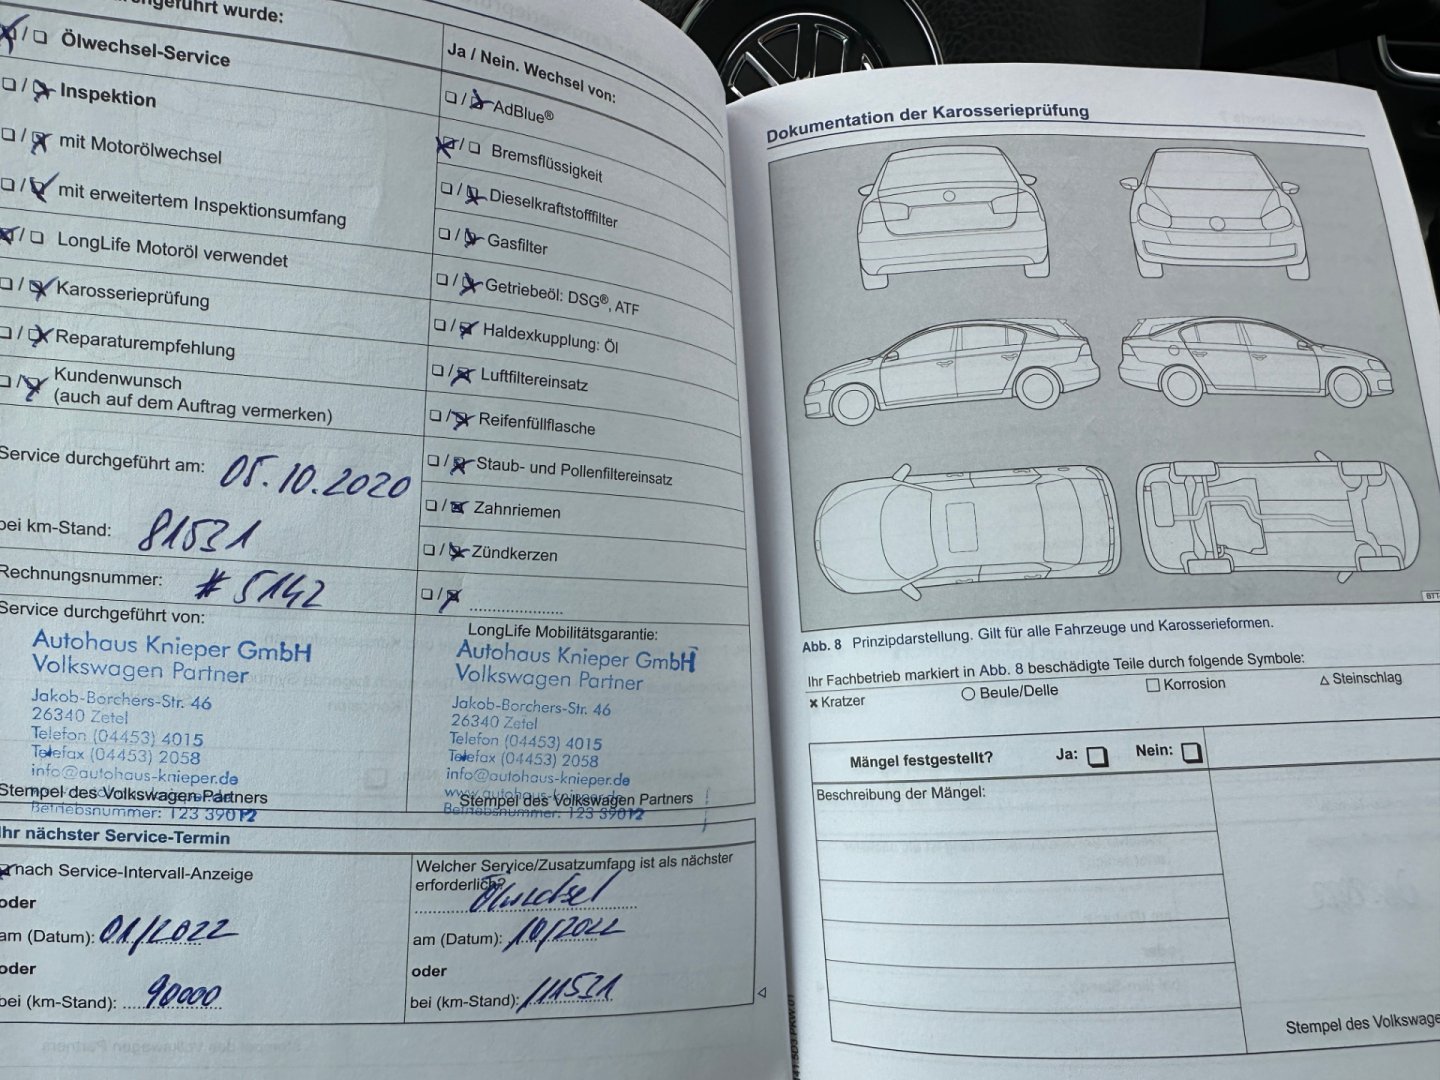 wurde:
Ölwechsel-Service
Inspektion
mit Motorölwechsel
mit erweitertem Inspektionsumfang
LongLife Motoröl verwendet
Karosserieprüfung
Reparaturempfehlung
Kundenwunsch
(auch auf dem Auftrag vermerken)
Service durchgeführt am: 05.10.2020
bei km-Stand: 81531
Rechnungsnummer: # 5142
Service durchgeführt von:
Autohaus Knieper GmbH
Volkswagen Partner
Jakob-Borchers-Str. 46
26340 Zetel
Telefon (04453) 4015
Telefax (04453) 2058
info@autohaus-knieper.de
Stempel des Volkswagen Partners
Betriebsnummer: 123 39012
Ja / Nein. Wechsel von:
AdBlue®
Bremsflüssigkeit
Dieselkraftstofffilter
Gasfilter
Getriebeöl: DSG®, ATF
Haldexkupplung: Öl
Luftfiltereinsatz
Reifenfüllflasche
Staub- und Pollenfiltereinsatz
Zahnriemen
Zündkerzen
LongLife Mobilitätsgarantie:
Autohaus Knieper GmbH
Volkswagen Partner
Jakob-Borchers-Str. 46
26340 Zetel
Telefon (04453) 4015
Telefax (04453) 2058
info@autohaus-knieper.de
www.autohaus-knieper.de
Stempel des Volkswagen Partners
Betriebsnummer: 123 39012
Ihr nächster Service-Termin
nach Service-Intervall-Anzeige
oder
am (Datum): 01/2022
oder
bei (km-Stand): 90000
Welcher Service/Zusatzumfang ist als nächster
erforderlich?
Ölwechsel
am (Datum): 10/2022
oder
bei (km-Stand): 111531
Dokumentation der Karosserieprüfung
Abb. 8 Prinzipdarstellung. Gilt für alle Fahrzeuge und Karosserieformen.
Ihr Fachbetrieb markiert in Abb. 8 beschädigte Teile durch folgende Symbole:
Kratzer Beule/Delle Korrosion Steinschlag
Mängel festgestellt? Ja: Nein:
Beschreibung der Mängel:
Stempel des